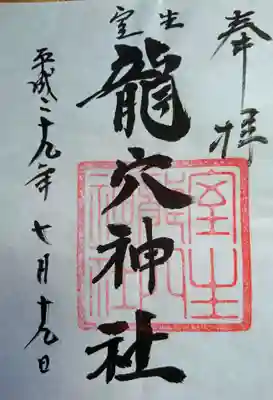 奉拝
室生
龍穴神社
室生龍穴神社
平成二十九年七月十九日